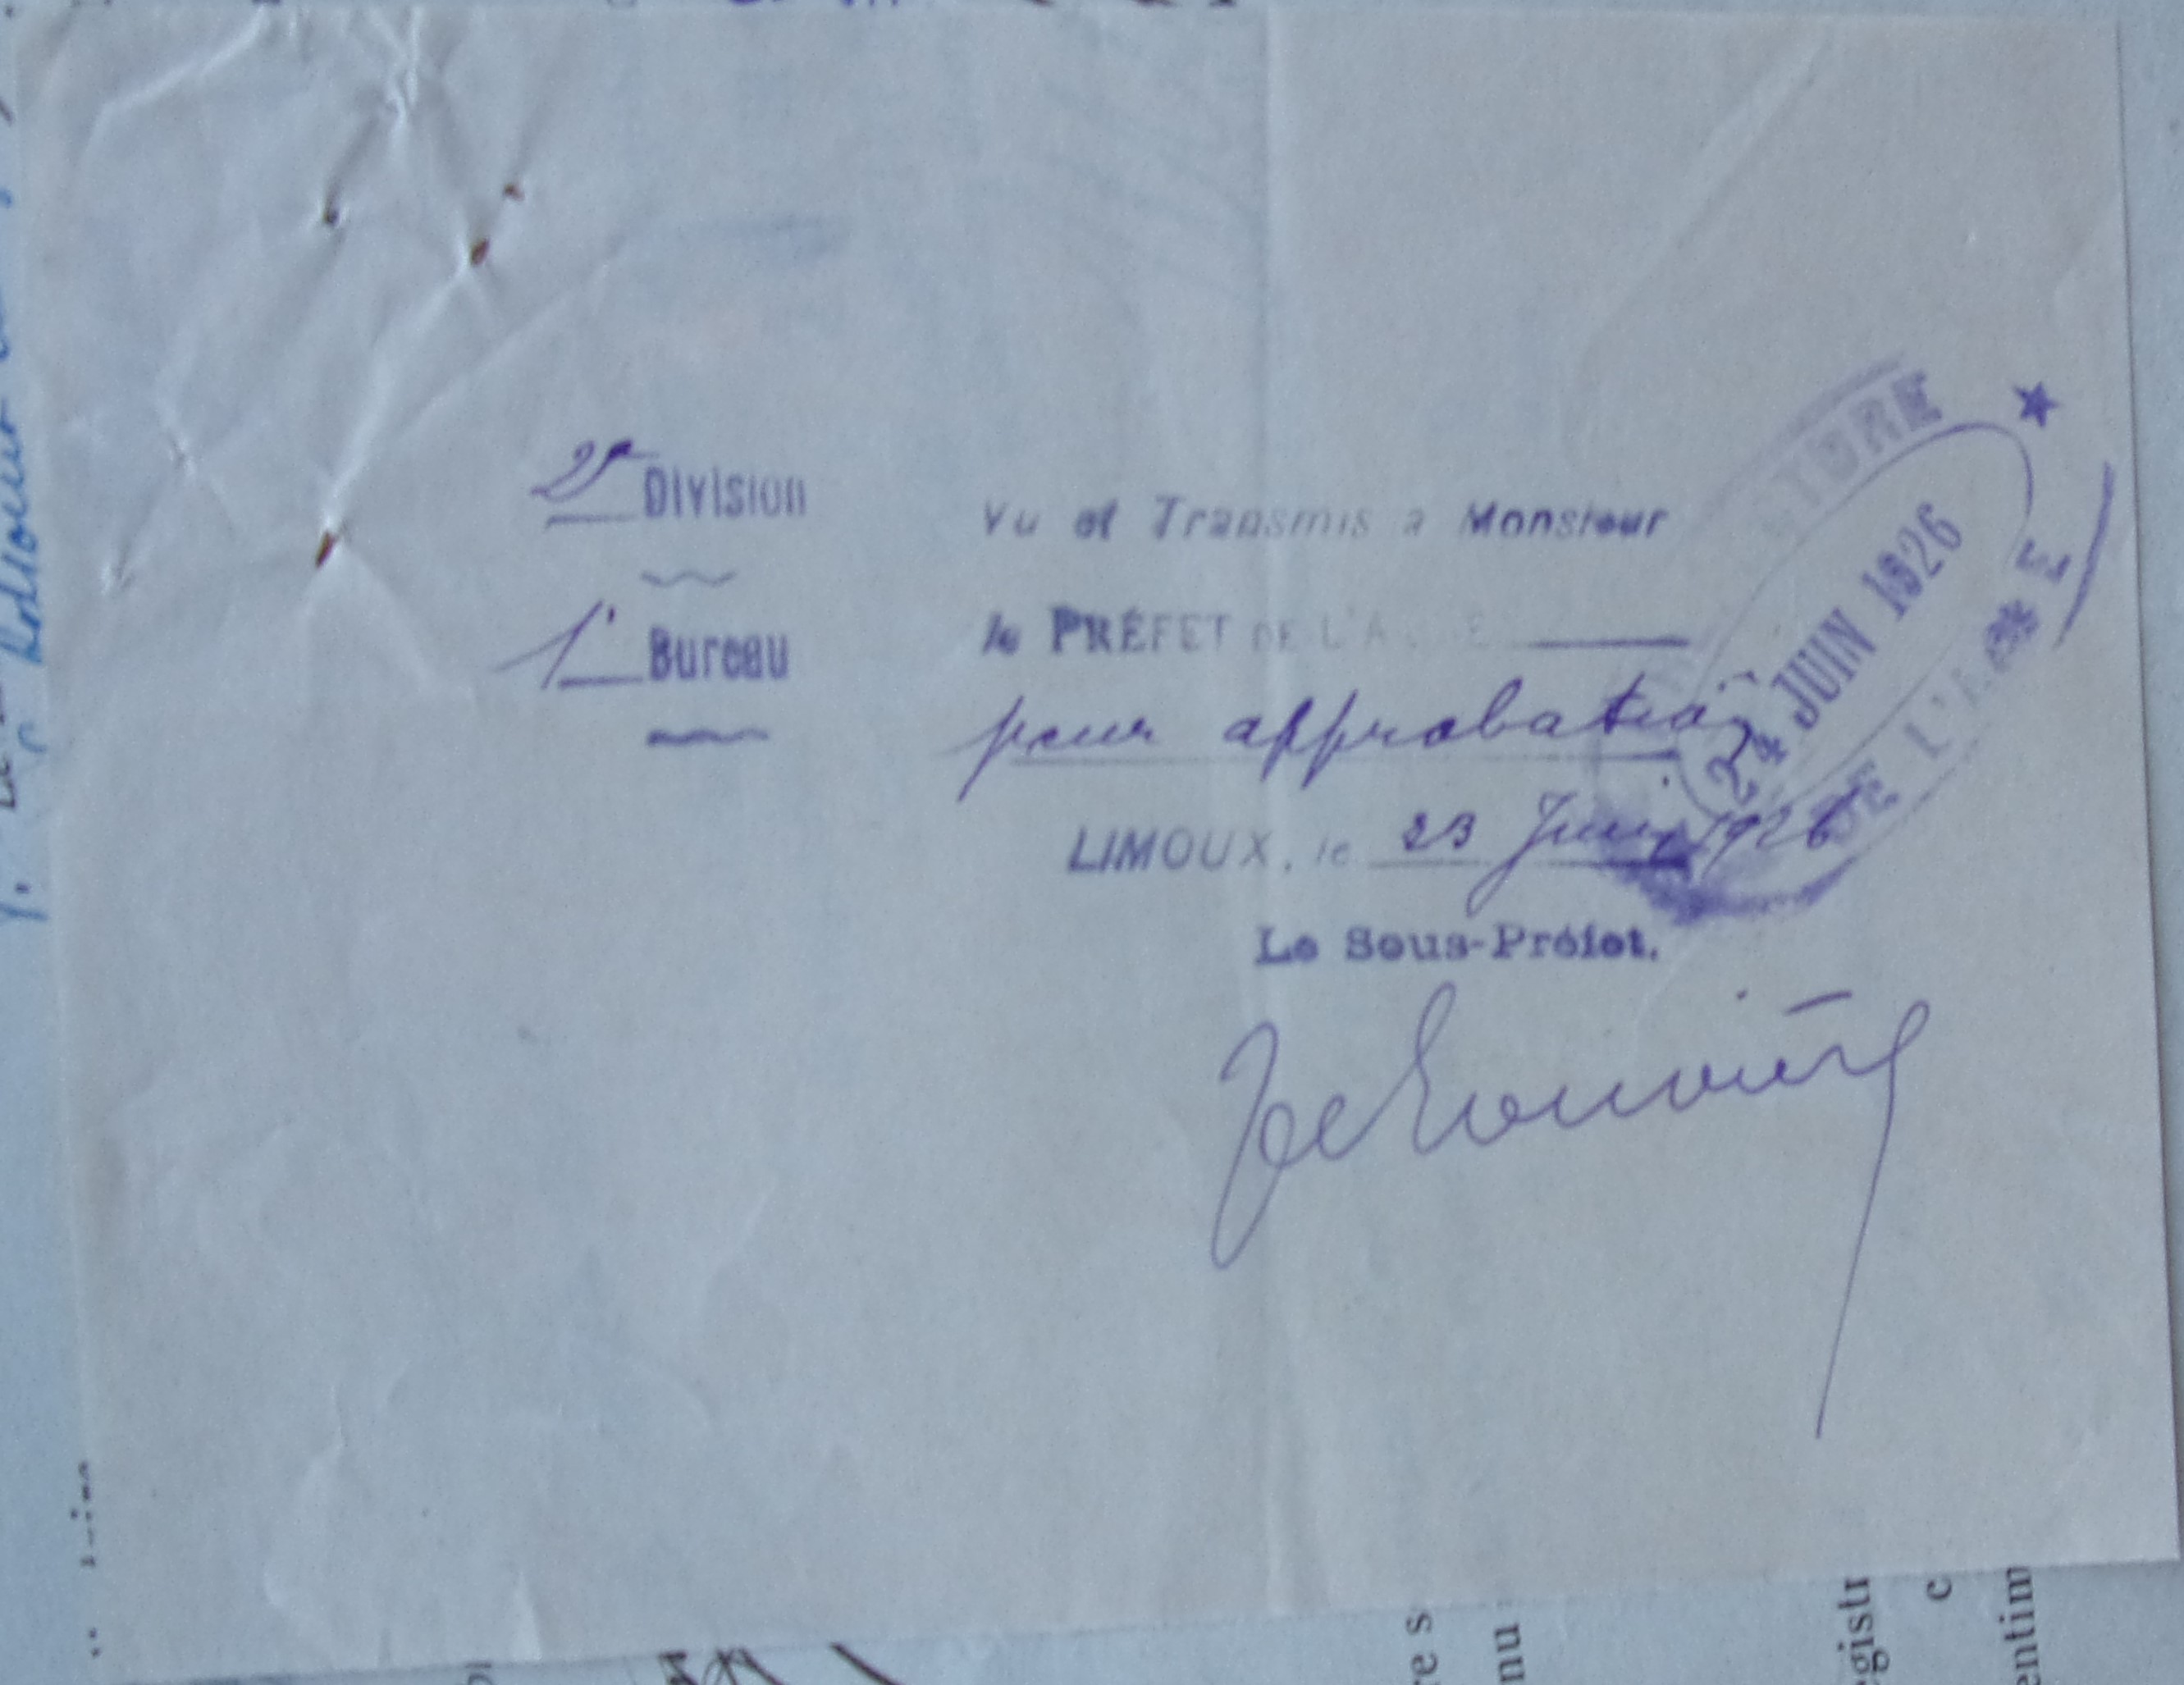 2e Division
1r Bureau
Vu et Transmis à Monsieur
le PRÉFET DE L'AUDE
pour approbation
LIMOUX, le 23 Juin 1926
Le Sous-Préfet.
24 JUIN 1926
DE L'AUDE
égistr
c
entim
re s
nu